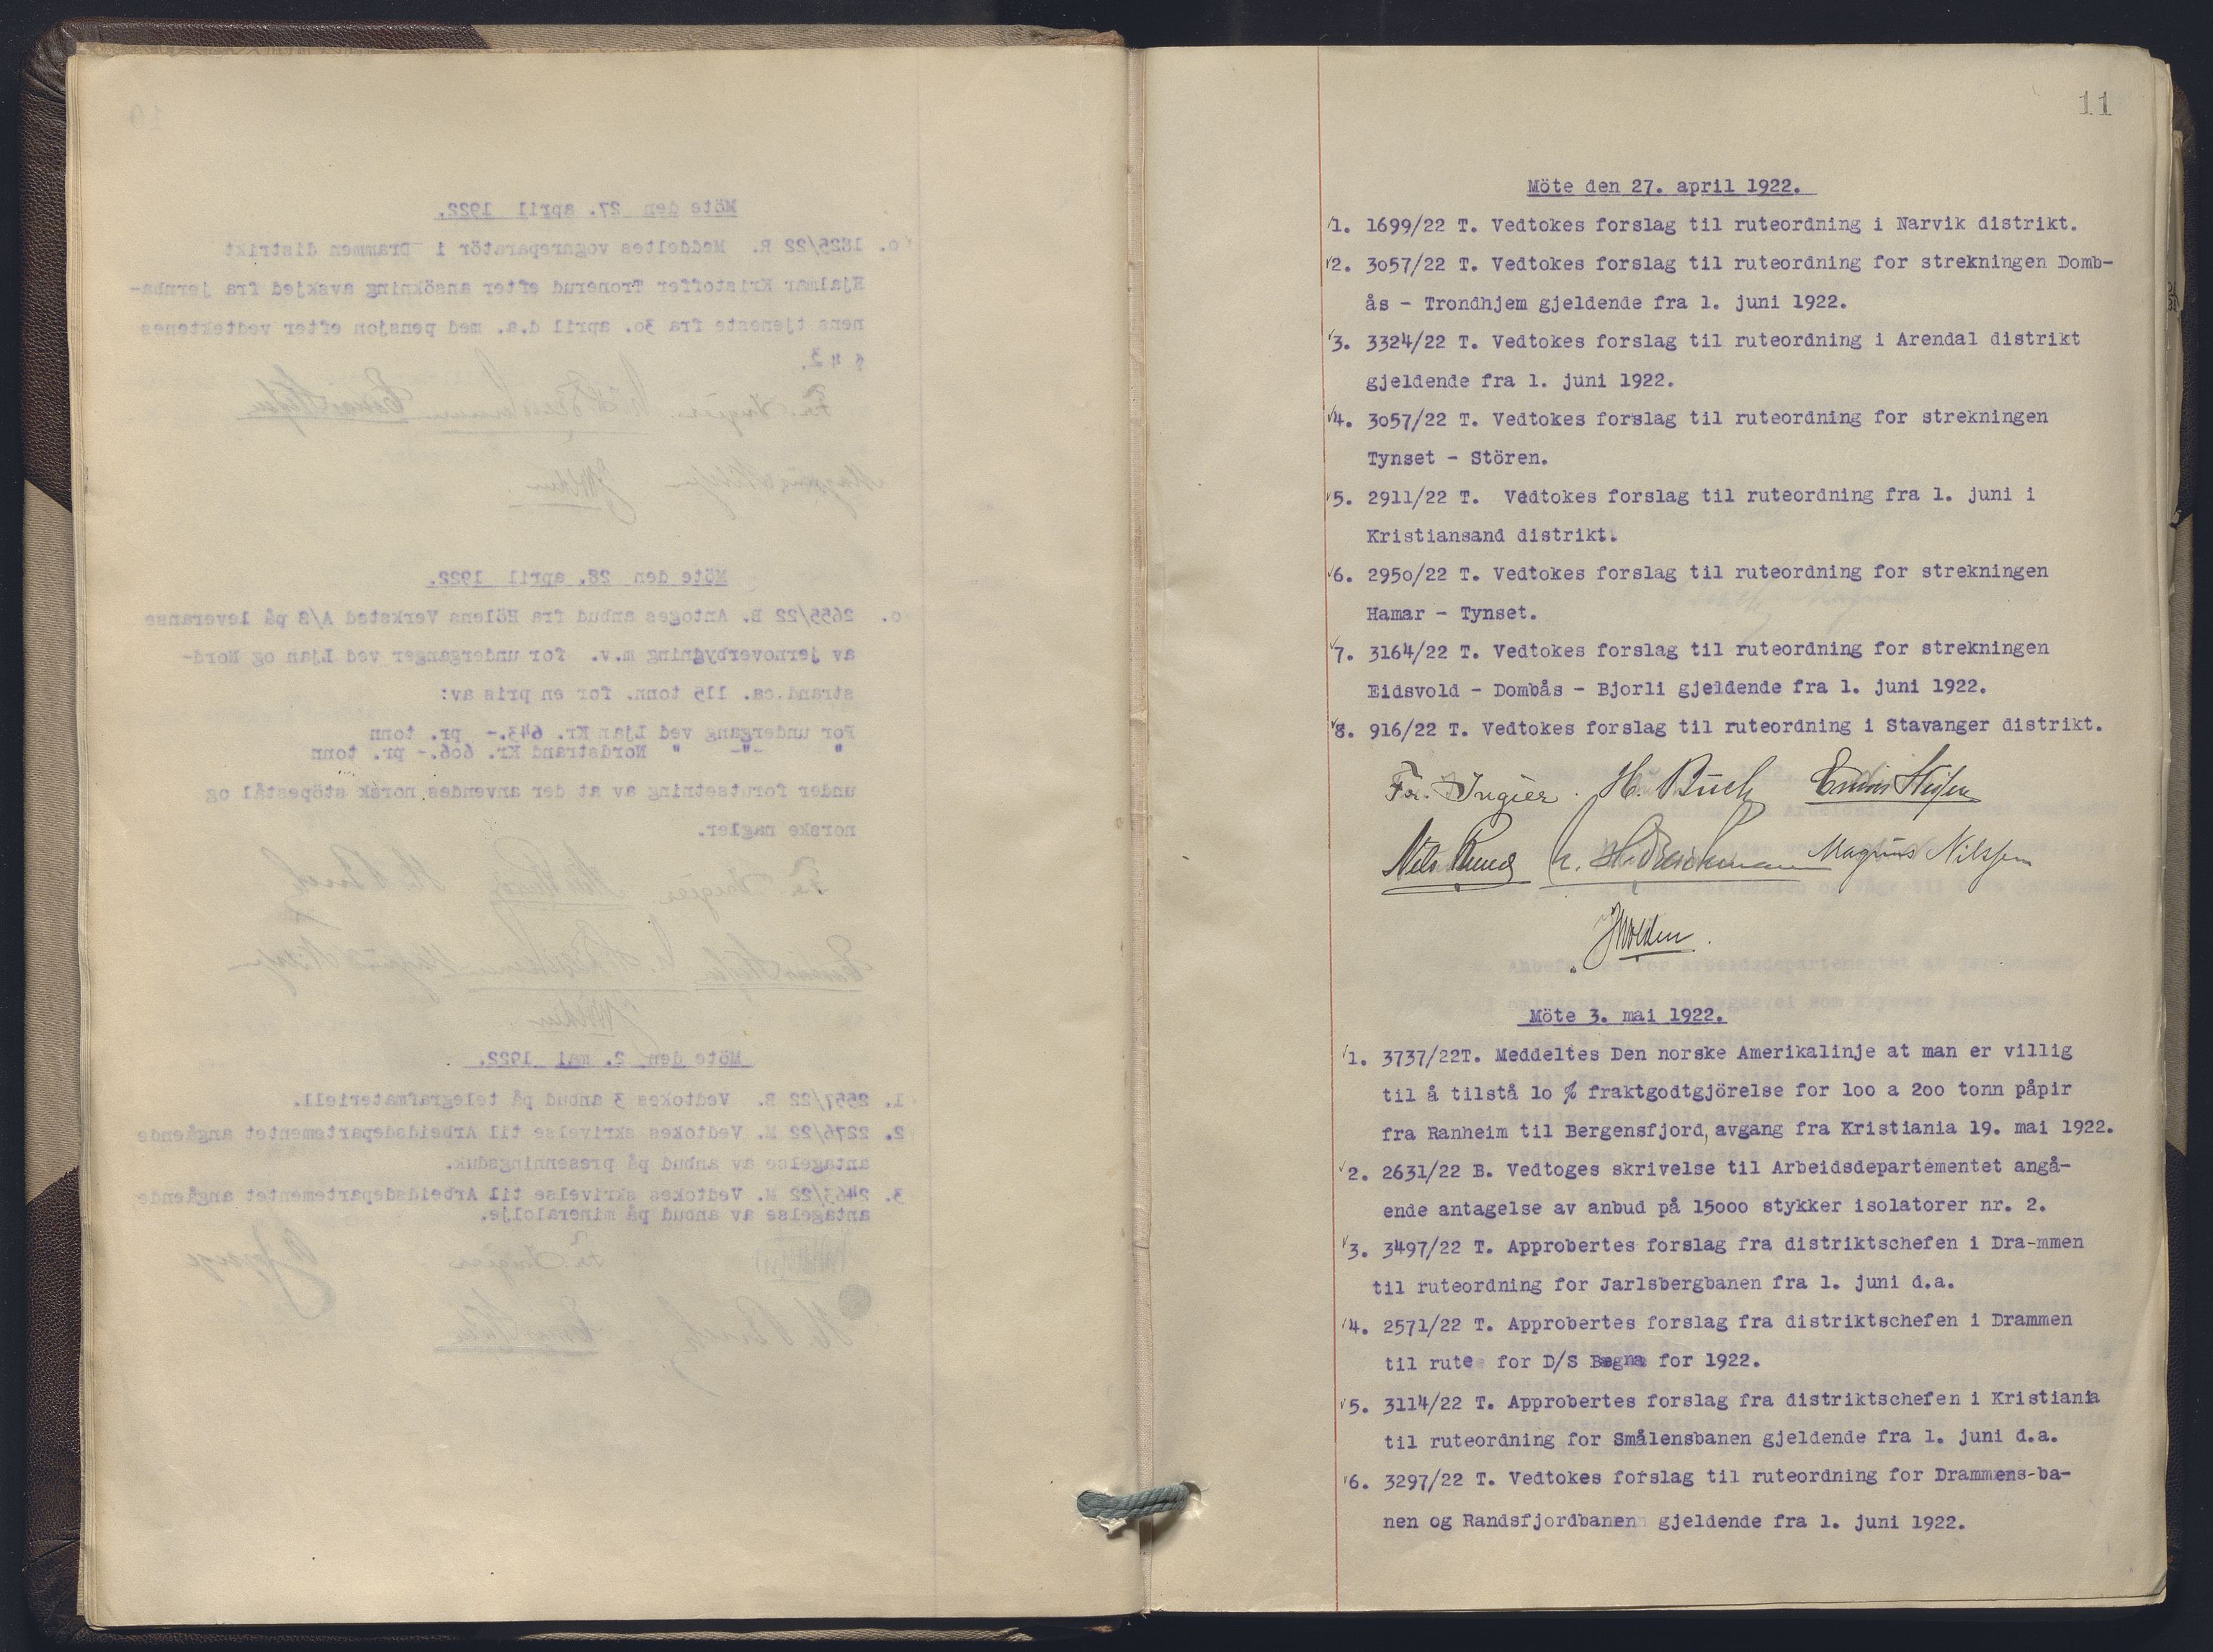 11
Möte den 27. april 1922.
1. 1699/22 T. Vedtokes forslag til ruteordning i Narvik distrikt.
2. 3o57/22 T. Vedtokes forslag til ruteordning for strekningen Domb-
ås - Trondhjem gjeldende fra 1. juni 1922.
3. 3324/22 T. Vedtokes forslag til ruteordning i Arendal distrikt
gjeldende fra 1. juni 1922.
4. 3o57/22 T. Vedtokes forslag til ruteordning for strekningen
Tynset - Stören.
5. 2911/22 T. Vedtokes forslag til ruteordning fra 1. juni i
Kristiansand distrikt.
6. 295o/22 T. Vedtokes forslag til ruteordning for strekningen
Hamar - Tynset.
7. 3164/22 T. Vedtokes forslag til ruteordning for strekningen
Eidsvold - Dombås - Bjorli gjeldende fra 1. juni 1922.
8. 916/22 T. Vedtokes forslag til ruteordning i Stavanger distrikt.
Fr. Ingier. H. Buch
Nils Magnus Nilssen
Möte 3. mai 1922.
1. 3737/22T. Meddeltes Den norske Amerikalinje at man er villig
til å tilstå 1o % fraktgodtgjörelse for 1oo a 2oo tonn påpir
fra Ranheim til Bergensfjord, avgang fra Kristiania 19. mai 1922.
2. 2631/22 B. Vedtoges skrivelse til Arbeidsdepartementet angå-
ende antagelse av anbud på 15ooo stykker isolatorer nr. 2.
3. 3497/22 T. Approbertes forslag fra distriktschefen i Dra-mmen
til ruteordning for Jarlsbergbanen fra 1. juni d.a.
4. 2571/22 T. Approbertes forslag fra distriktschefen i Drammen
til rute for D/S Bægna for 1922.
5. 3114/22 T. Approbertes forslag fra distriktschefen i Kristiania
til ruteordning for Smålensbanen gjeldende fra 1. juni d.a.
6. 3297/22 T. Vedtokes forslag til ruteordning for Drammens-ba-
nen og Randsfjordbanen gjeldende fra 1. juni 1922.